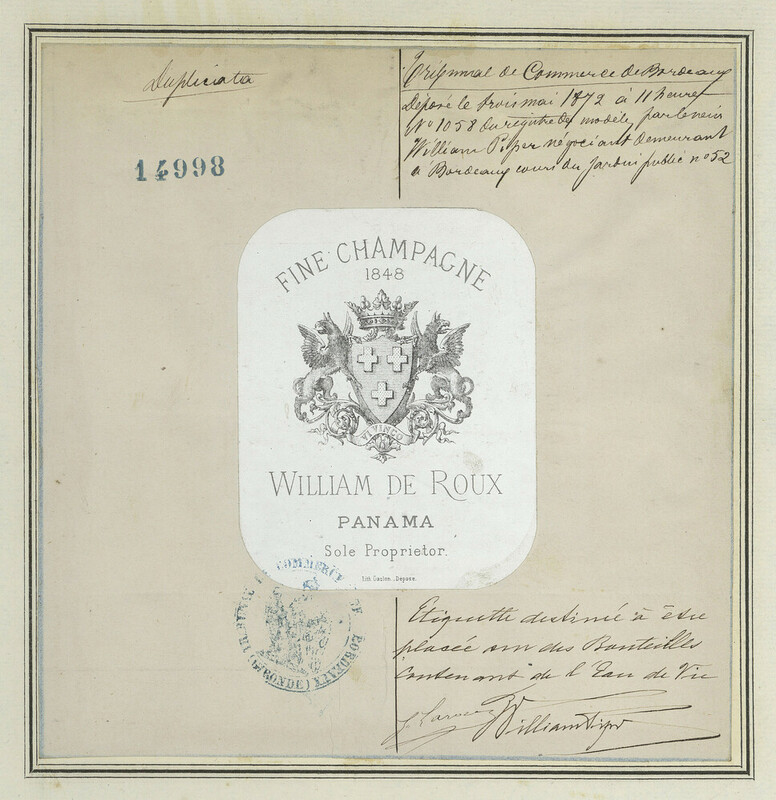 Duplicata
14998
Tribunal de Commerce de Bordeaux
Déposé le trois mai 1872 à 11 heures
No 1058 du registre des modèles par le sieur
William Piper négociant demeurant
à Bordeaux cours du Jardin public no 52
FINE CHAMPAGNE
1848
VI VINCO
WILLIAM DE ROUX
PANAMA
Sole Proprietor.
Lith. Goulon. Depose.
TRIBUNAL DE COMMERCE DE BORDEAUX
(GIRONDE)
Etiquette destinée à être
placée sur des Bouteilles
Contenant de l'Eau de Vie
William Piper